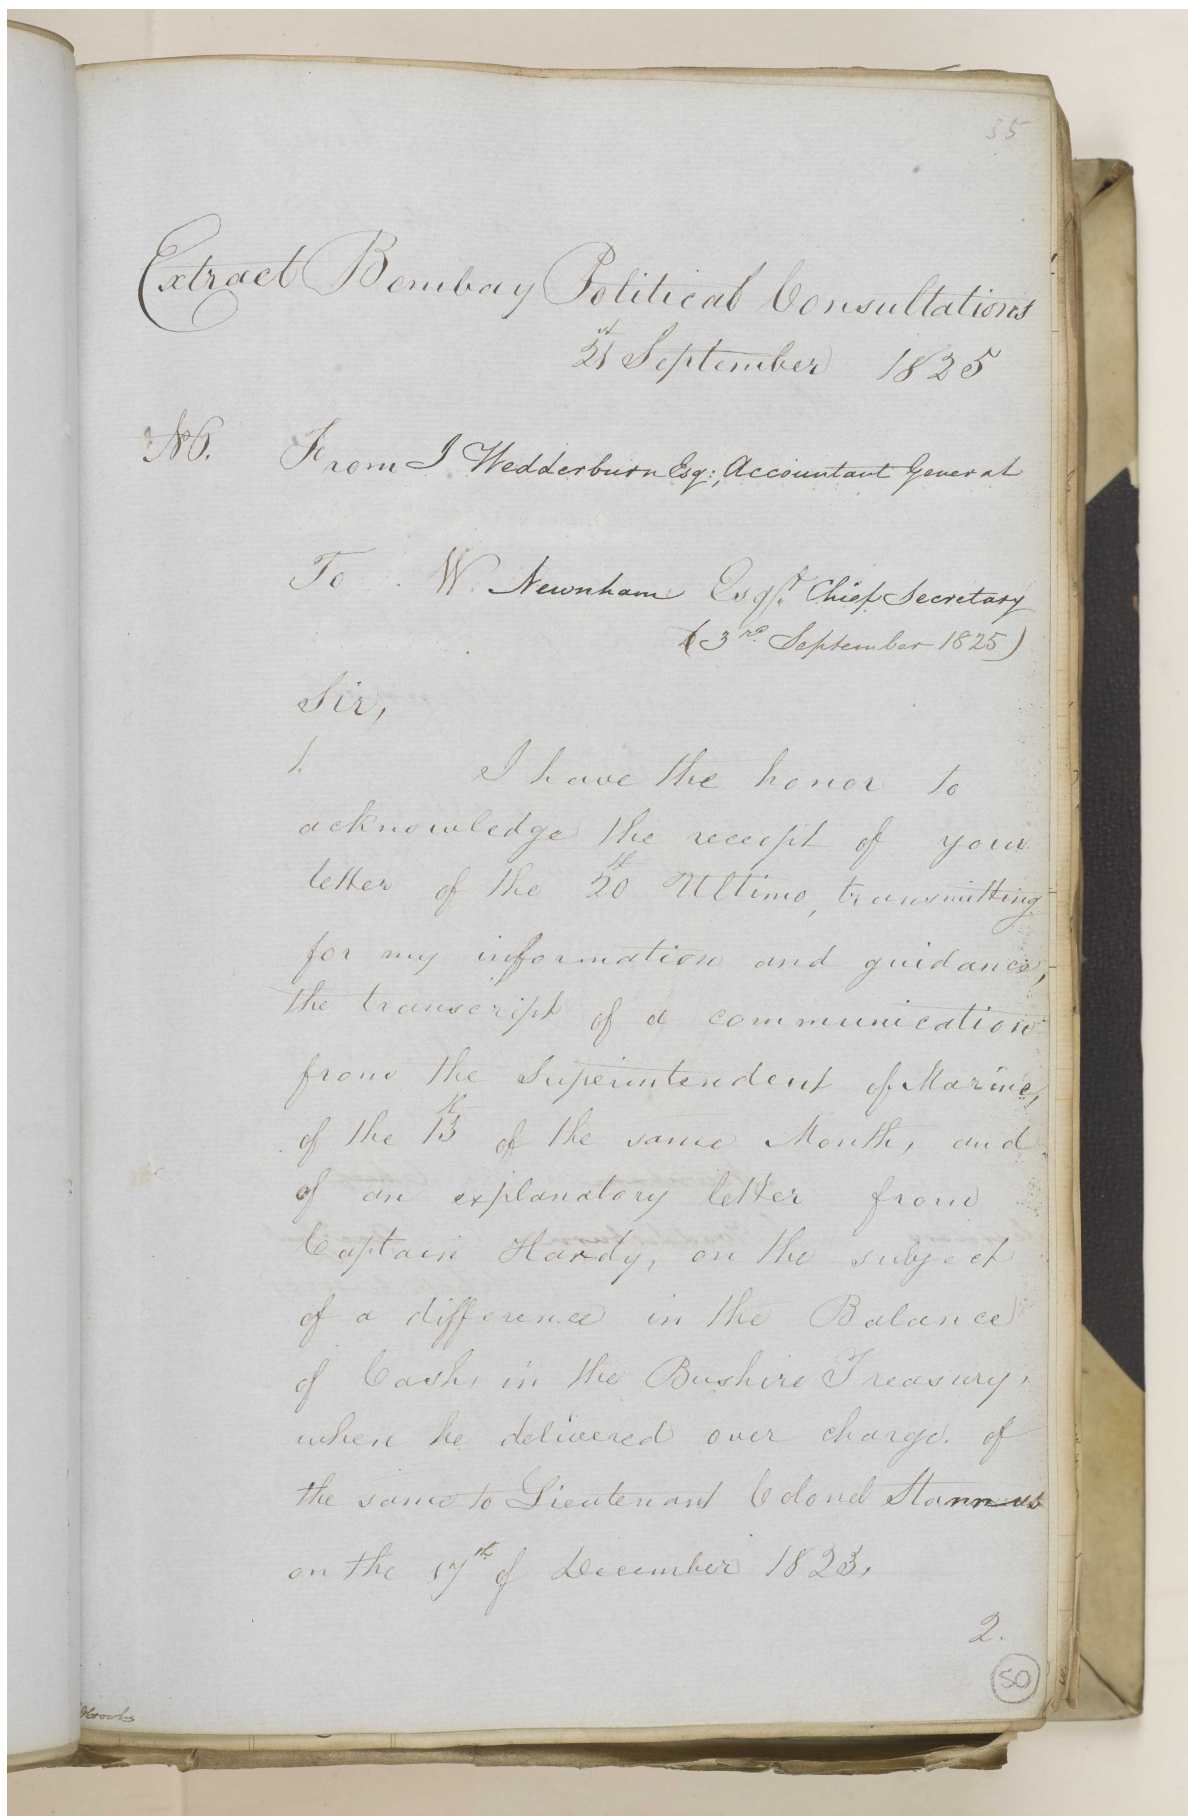 35
Extract Bombay Political Consultations
21st September 1825
No 6.
From J Wedderburn Esq:, Accountant General
To W. Newnham Esqr. Chief Secretary
(3rd September 1825)
Sir,
1. I have the honor to
acknowledge the receipt of your
letter of the 20th Ultimo, transmitting
for my information and guidance,
the transcript of a communication
from the Superintendent of Marine,
of the 13th of the same Month, and
of an explanatory letter from
Captain Hardy, on the subject
of a difference in the Balance
of Cash, in the Bushire Treasury,
when he delivered over charge of
the same to Lieutenant Colonel Stannus
on the 17th of December 1823.
2.
50